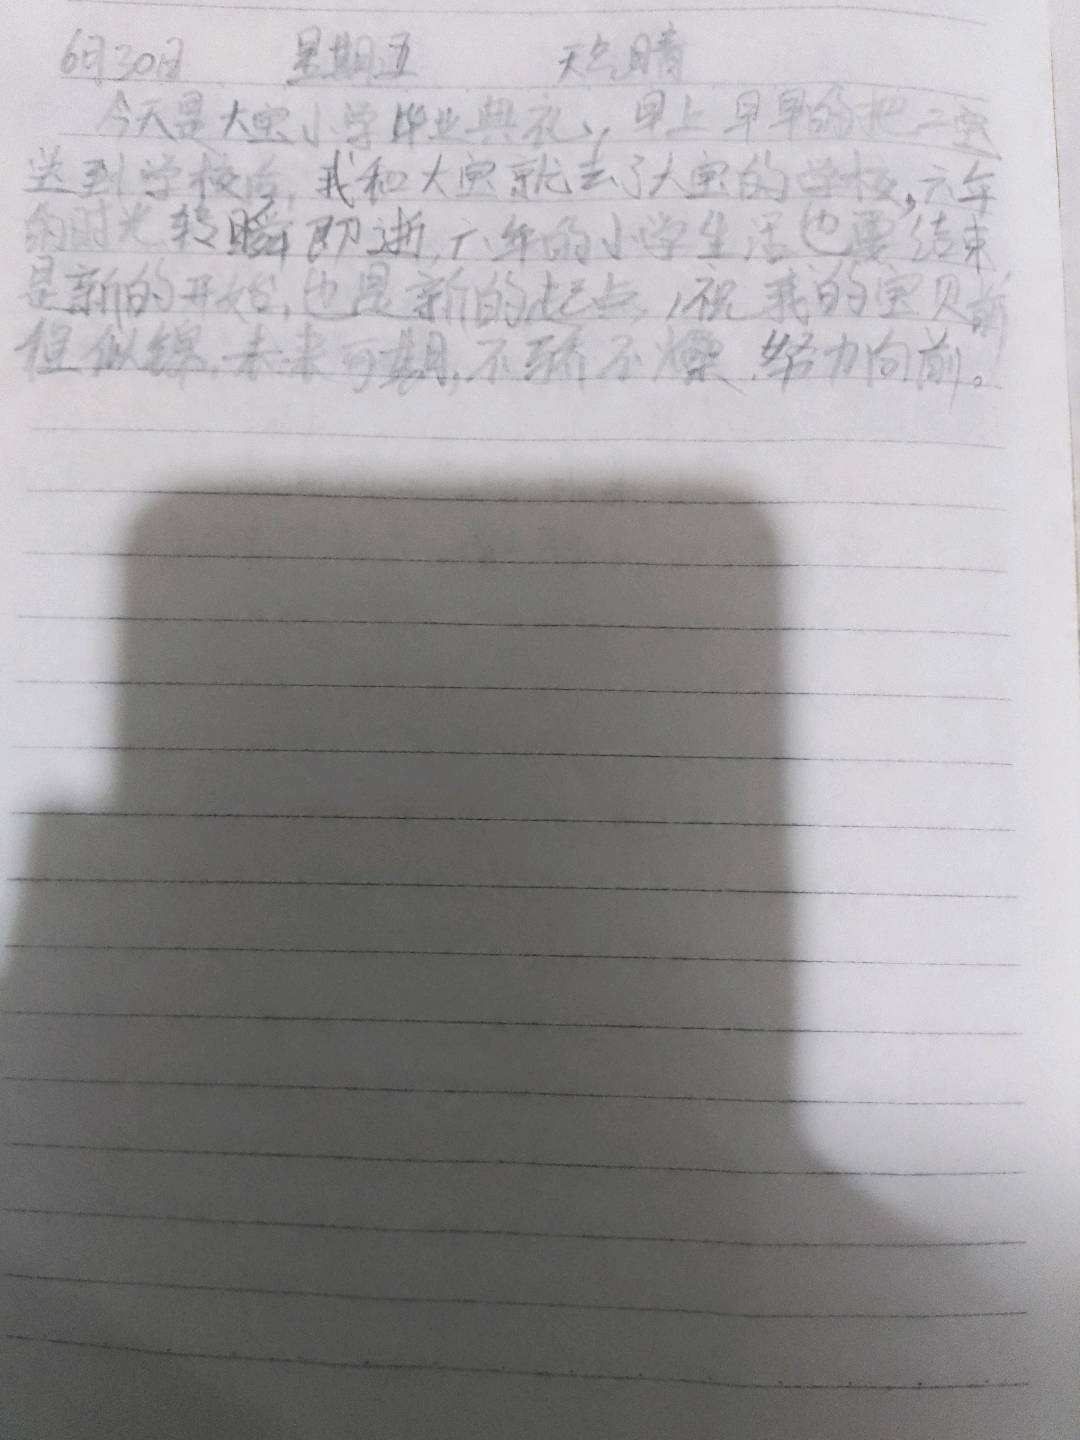 6月30日 星期五 天气晴
今天是大宝小学毕业典礼，早上早早的把二宝
送到学校后，我和大宝就去了大宝的学校，六年
的时光转瞬即逝，六年的小学生活也要结束，
是新的开始，也是新的起点，祝我的宝贝前
程似锦，未来可期，不骄不燥，努力向前。